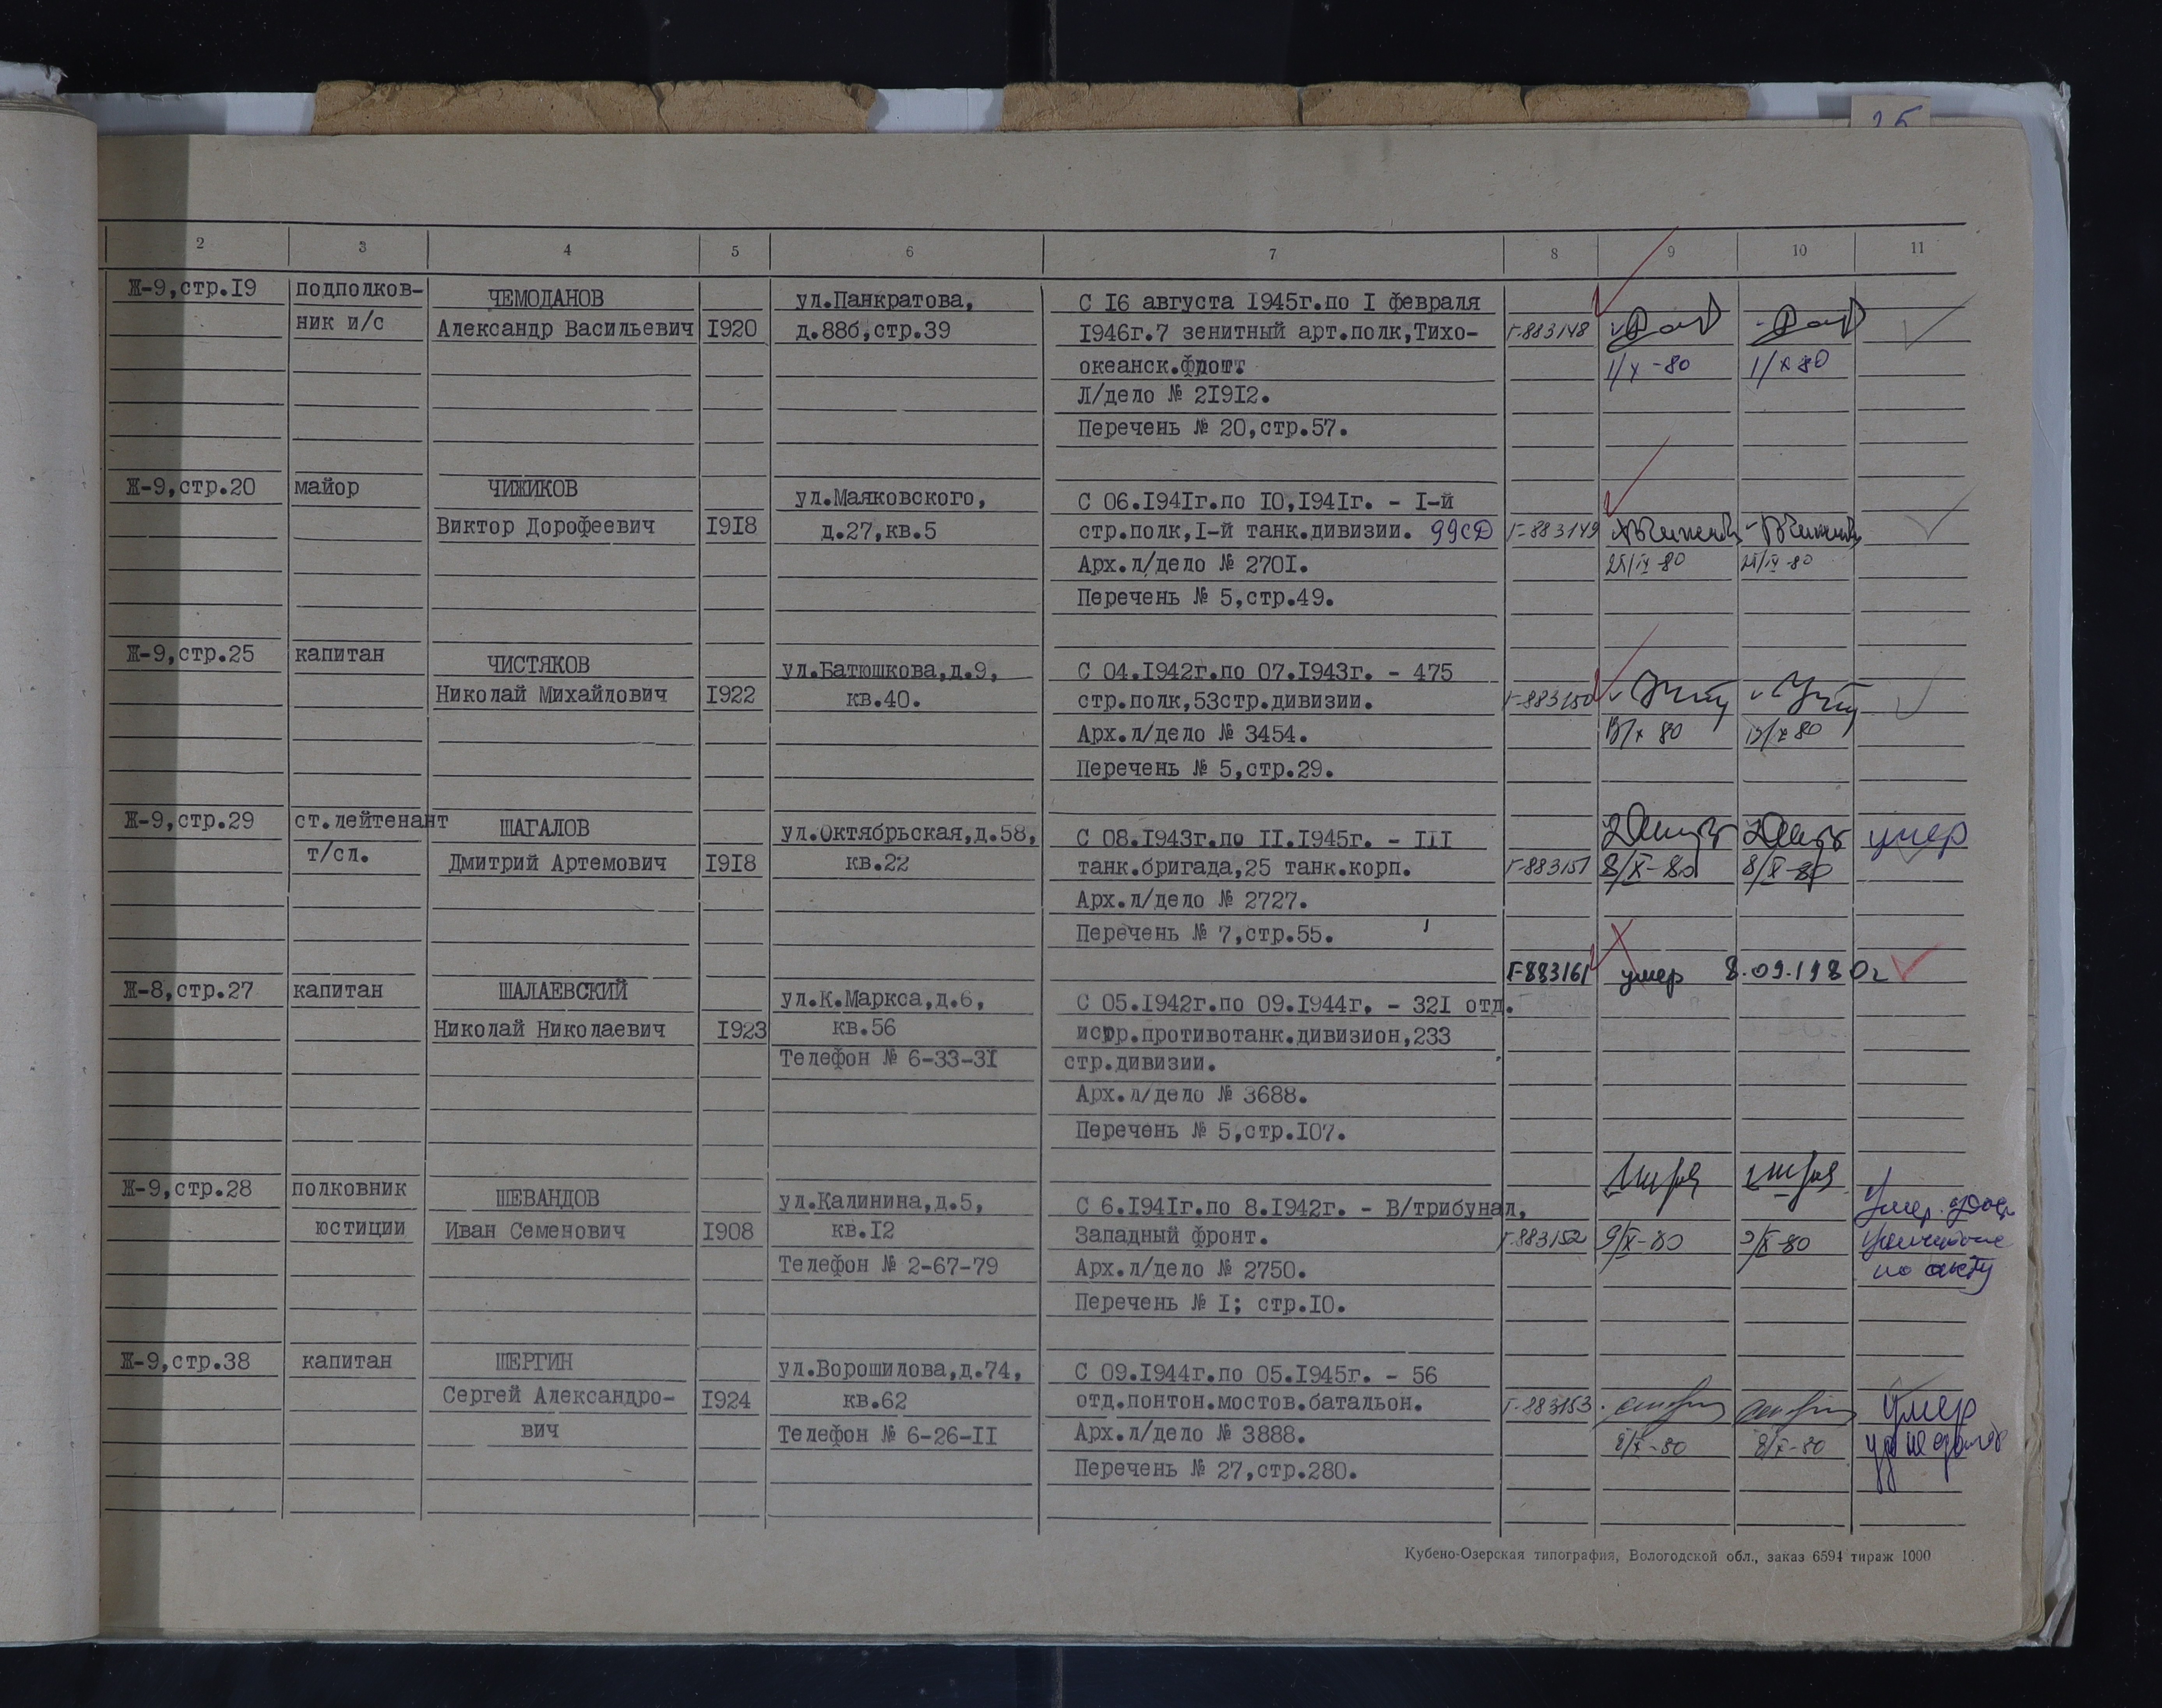 25
2 3 4 5 6 7 8 9 10 11
Ж-9,стр.19 подполков- ЧЕМОДАНОВ ул.Панкратова, С 16 августа 1945г.по I февраля
ник и/с Александр Васильевич 1920 д.88б,стр.39 1946г.7 зенитный арт.полк,Тихо- Г-883148
океанск.флот. 1/X-80 1/X 80
Л/дело № 21912.
Перечень № 20,стр.57.
Ж-9,стр.20 майор ЧИЖИКОВ ул.Маяковского, С 06.1941г.по 10,1941г. - I-й
Виктор Дорофеевич 1918 д.27,кв.5 стр.полк,I-й танк.дивизии. 99сд Г-883149
Арх.л/дело № 2701. 25/IX-80 25/IX-80
Перечень № 5,стр.49.
Ж-9,стр.25 капитан ЧИСТЯКОВ ул.Батюшкова,д.9, С 04.1942г.по 07.1943г. - 475
Николай Михайлович 1922 кв.40. стр.полк,53стр.дивизии. Г-883150
Арх.л/дело № 3454.
Перечень № 5,стр.29.
Ж-9,стр.29 ст.лейтенант ШАГАЛОВ ул.Октябрьская,д.58, С 08.1943г.по II.1945г. - III умер
т/сл. Дмитрий Артемович 1918 кв.22 танк.бригада,25 танк.корп. Г-883151 8/X-80 8/X-80
Арх.л/дело № 2727.
Перечень № 7,стр.55.
Г-883161 умер 8.09.1980г
Ж-8,стр.27 капитан ШАЛАЕВСКИЙ ул.К.Маркса,д.6, С 05.1942г.по 09.1944г. - 321 отд.
Николай Николаевич 1923 кв.56 истр.противотанк.дивизион,233
Телефон № 6-33-31 стр.дивизии.
Арх.л/дело № 3688.
Перечень № 5,стр.107.
Ж-9,стр.28 полковник ШЕВАНДОВ ул.Калинина,д.5, С 6.1941г.по 8.1942г. - В/трибунал, Умер.
юстиции Иван Семенович 1908 кв.12 Западный фронт. Г-883152 9/X-80 9/X-80
Телефон № 2-67-79 Арх.л/дело № 2750. по акту
Перечень № I; стр.10.
Ж-9,стр.38 капитан ШЕРГИН ул.Ворошилова,д.74, С 09.1944г.по 05.1945г. - 56
Сергей Александро- 1924 кв.62 отд.понтон.мостов.батальон. Г-883153 Умер
вич Телефон № 6-26-11 Арх.л/дело № 3888. 8/X-80 8/X-80
Перечень № 27,стр.280.
Кубено-Озерская типография, Вологодской обл., заказ 6594 тираж 1000